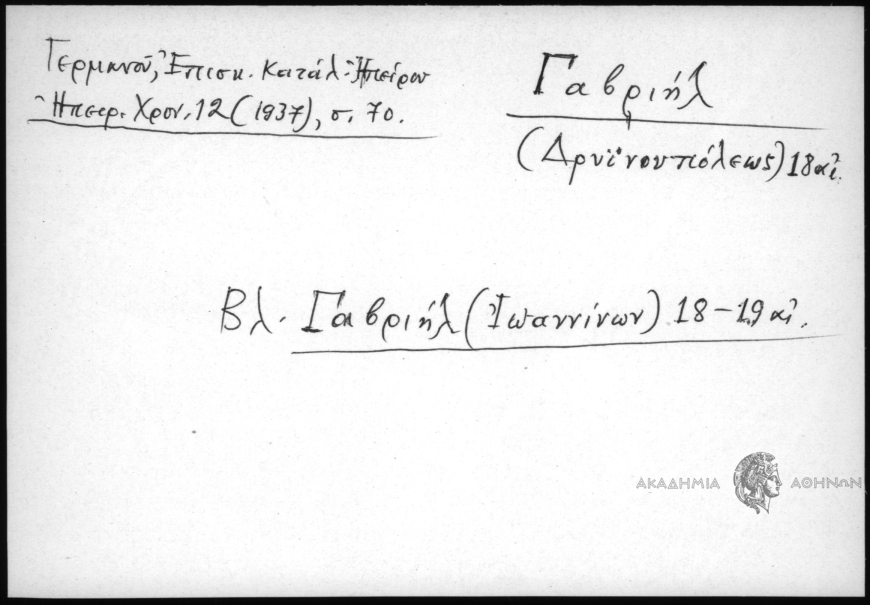 Γερμανοῦ, Ἐπισκ. Κατάλ. Ἠπείρου
Ἠπειρ. Χρον. 12 (1937), σ. 70.
Γαβριήλ
(Δρυϊνουπόλεως) 18 αἰ.
Βλ. Γαβριήλ (Ἰωαννίνων) 18-19 αἰ.
ΑΚΑΔΗΜΙΑ ΑΘΗΝΩΝ